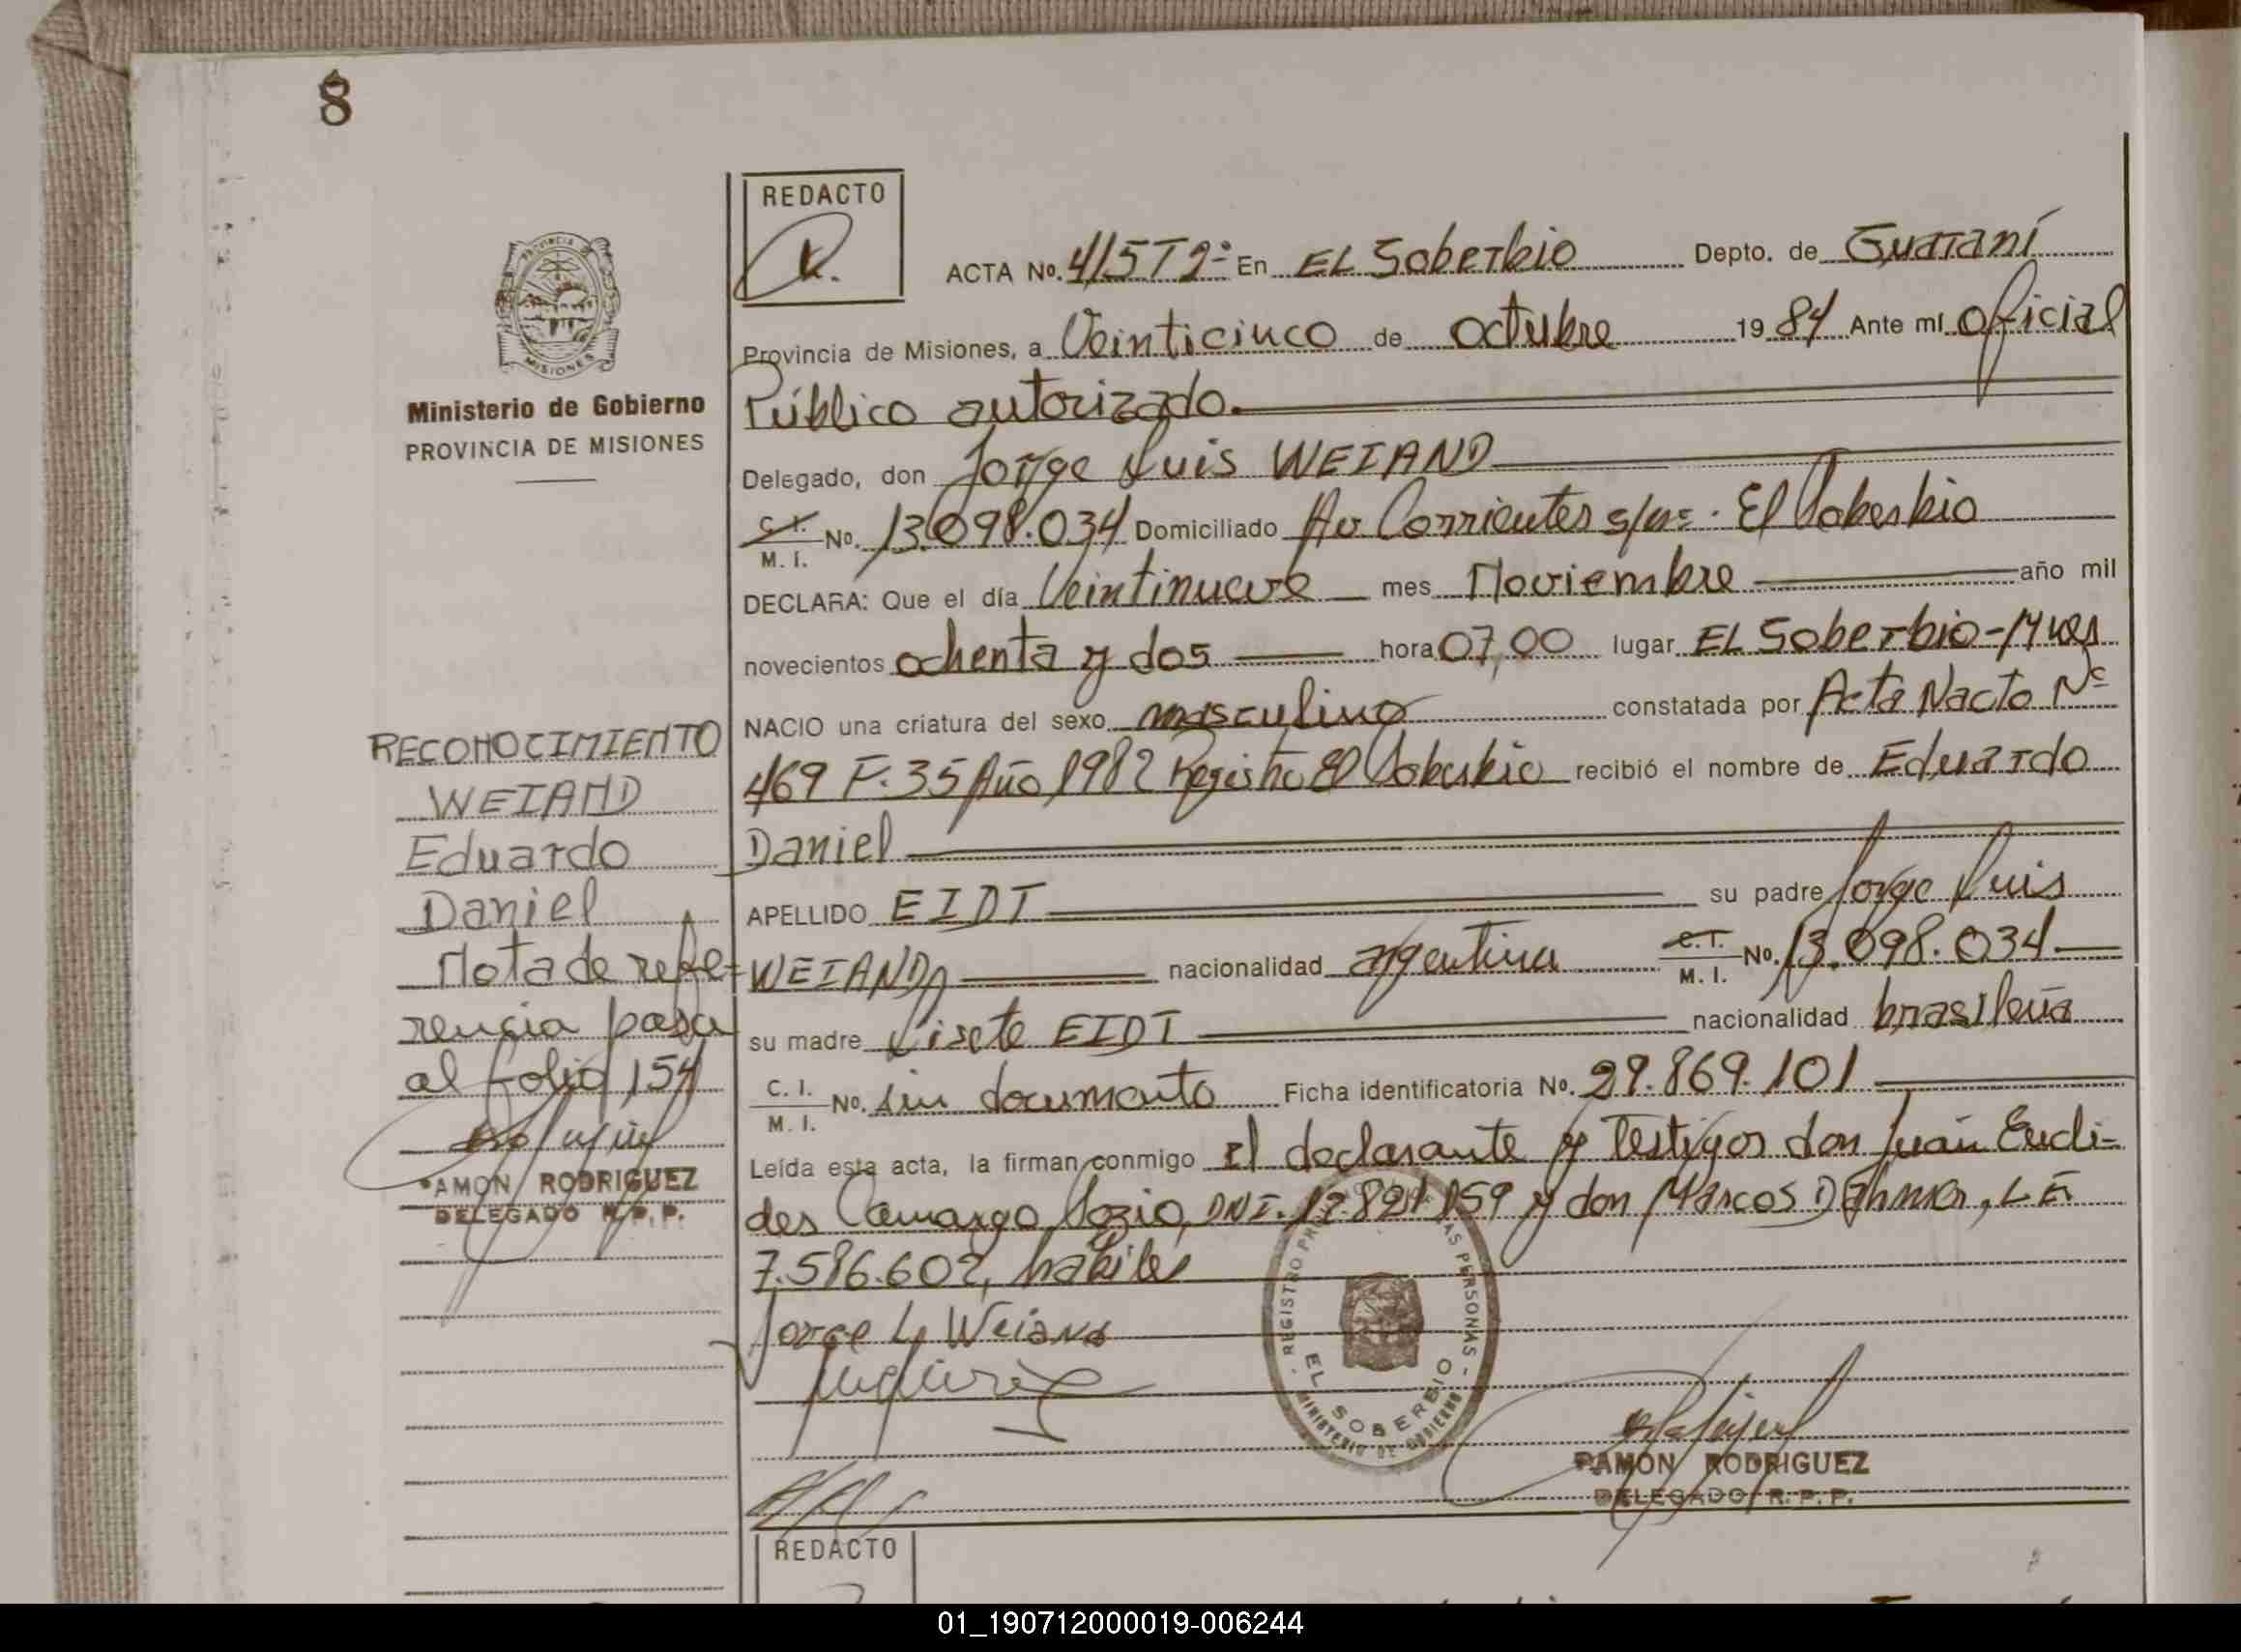 8
REDACTO
ACTA No. 415 T2º En EL Soberbio Depto. de Guaraní
Provincia de Misiones, a Veinticinco de octubre 19 84 Ante mí oficial
Público autorizado.
Delegado, don Jorge Luis WEIAND
C. I. M. I. No. 13.098.034 Domiciliado Av Corrientes s/nº. El Soberbio
DECLARA: Que el día Veintinueve mes Noviembre año mil
novecientos ochenta y dos hora 07,00 lugar EL Soberbio-Mnes
NACIO una criatura del sexo masculino constatada por Acta Nacto Nº
469 F. 35 Año 1982 Registro El Soberbio recibió el nombre de Eduardo
Daniel
APELLIDO EIDT su padre Jorge Luis
WEIAND nacionalidad argentina C. I. M. I. No. 13.098.034
su madre Lisete EIDT nacionalidad brasileña
C. I. M. I. No. sin documento Ficha identificatoria No. 29.869.101
Leída esta acta, la firman conmigo el declarante y Testigos don Juán Eucli-
des Camargo DNI. y don Marcos LE
7.586.602, habiles
Jorge L Weiand
MISIONES
Ministerio de Gobierno
PROVINCIA DE MISIONES
RECONOCIMIENTO
WEIAND
Eduardo
Daniel
Nota de refe-
rencia pasa
al folio 154
RAMON RODRIGUEZ
DELEGADO R. P. P.
EL SOBERBIO
MINISTERIO DE GOBIERNO
RAMON RODRIGUEZ
DELEGADO R. P. P.
REDACTO
01_190712000019-006244